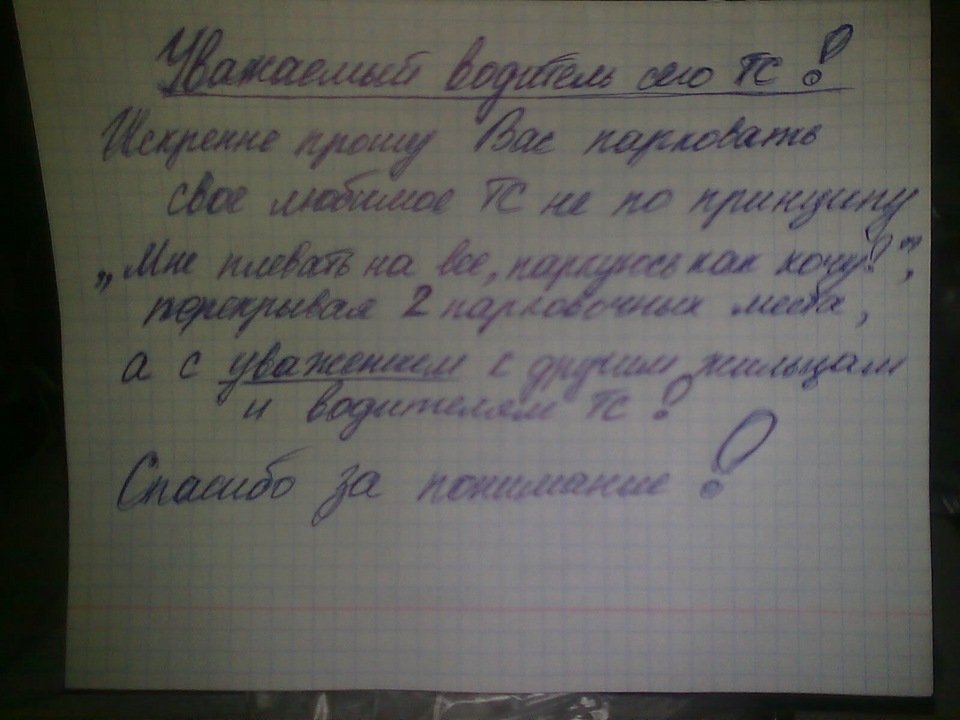 Уважаемый водитель сего ТС!
Искренне прошу Вас парковать
свое любимое ТС не по принципу
„Мне плевать на все, паркуюсь как хочу!",
перекрывая 2 парковочных места,
а с уважением к другим жильцам
и водителям ТС!
Спасибо за понимание!